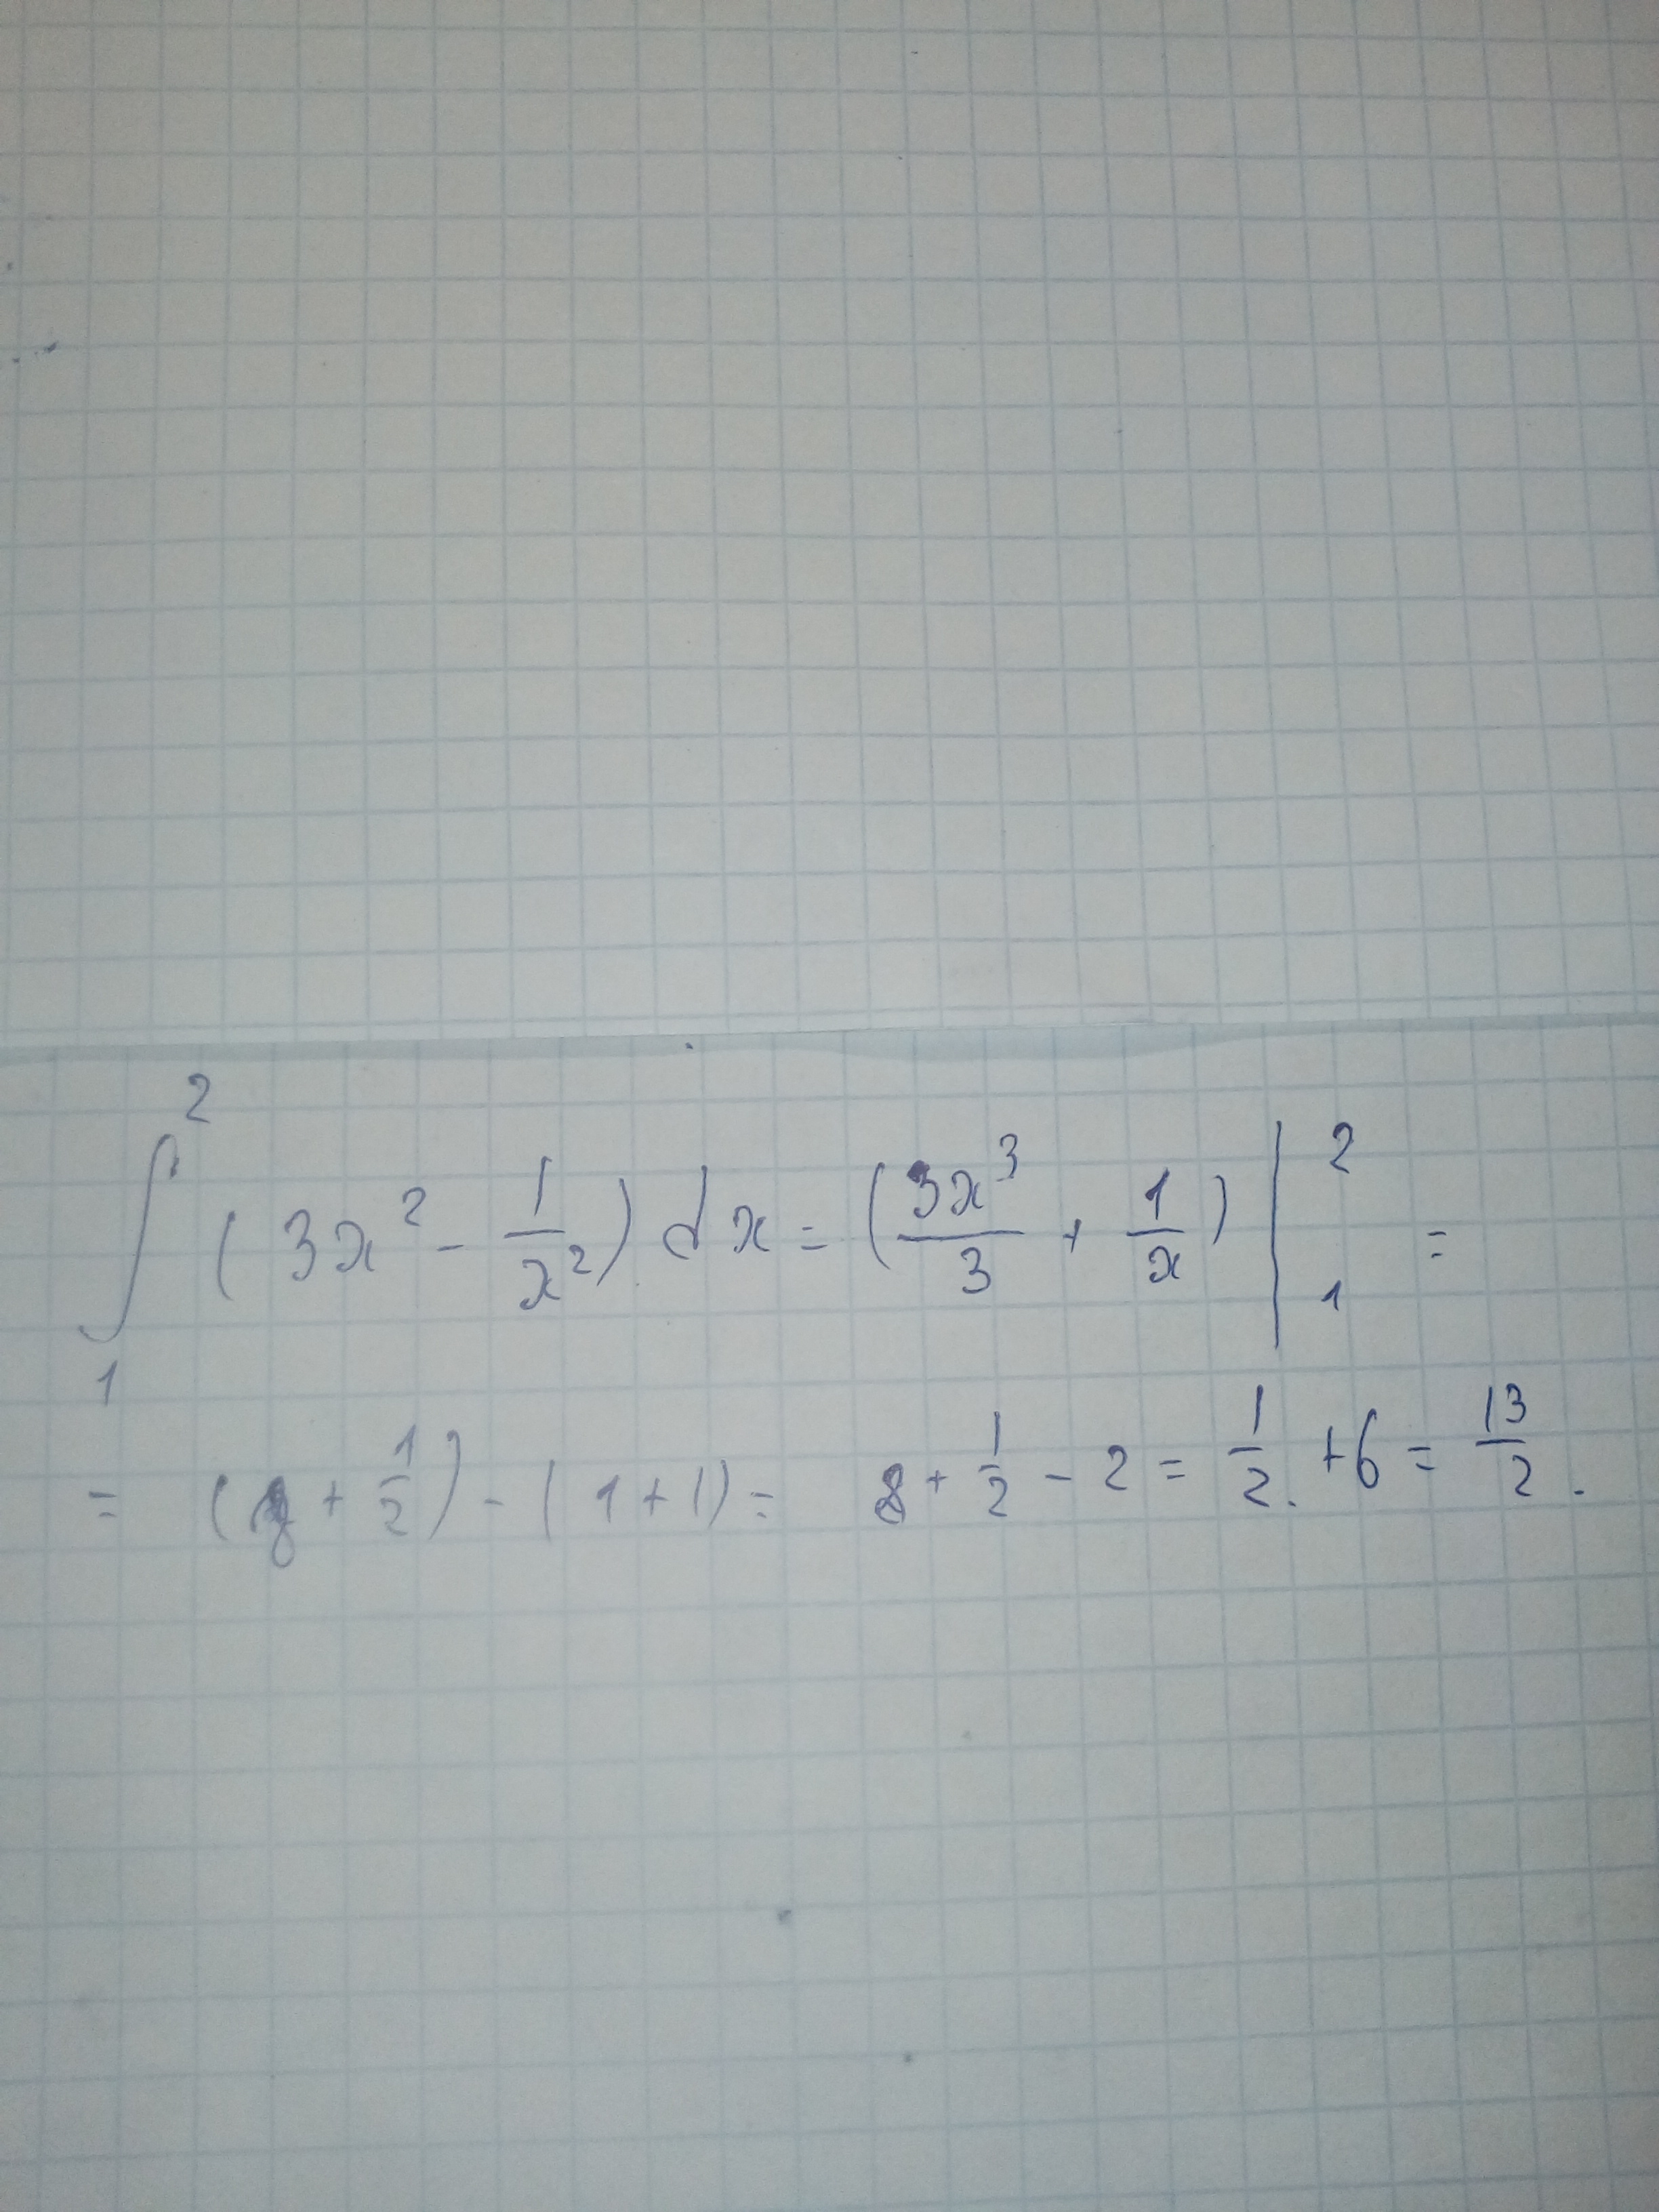 ∫₁² (3x² - 1/x²) dx = (3x³/3 + 1/x) |₁² =
= (8 + 1/2) - (1 + 1) = 8 + 1/2 - 2 = 1/2 + 6 = 13/2.